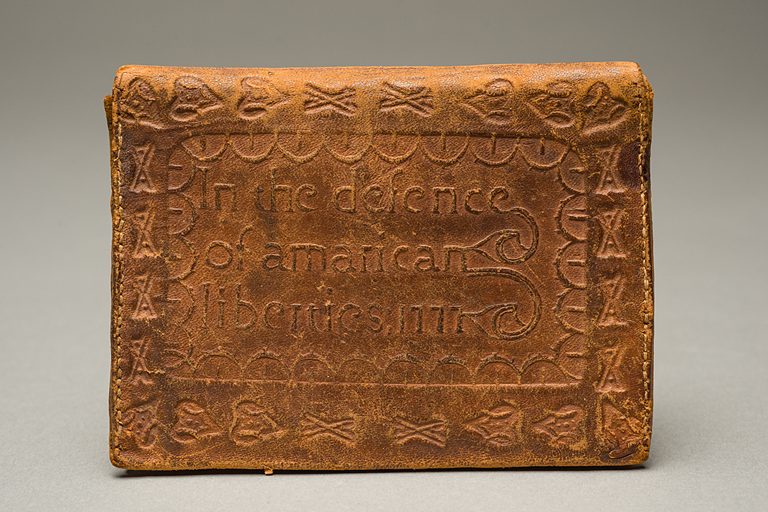 In the defence
of amarican
liberties, 1777